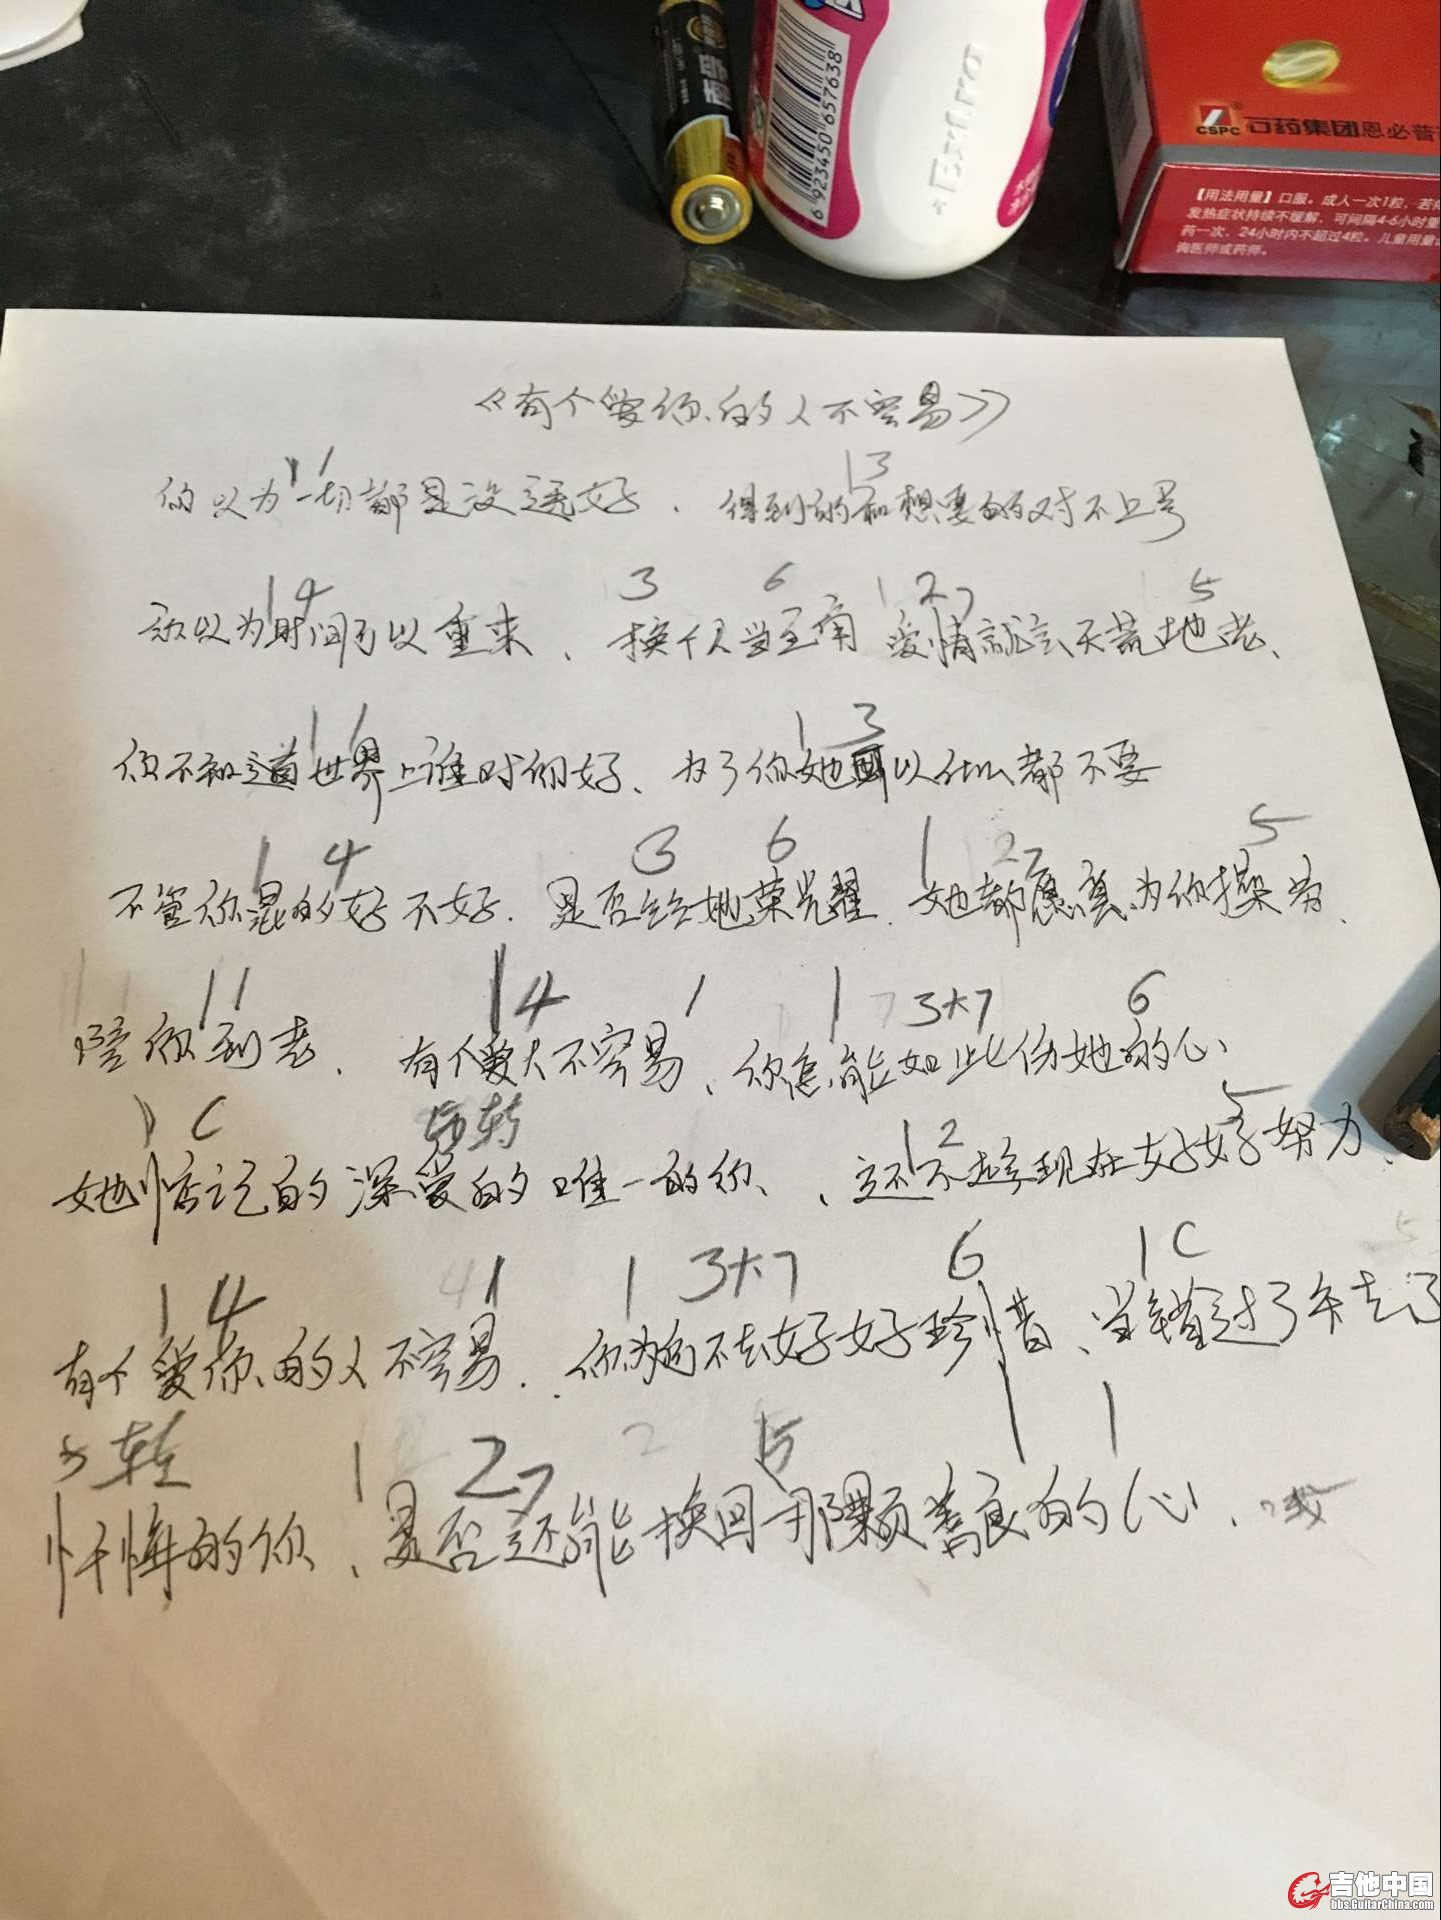 南孚
6 923450 657638
Extra
CSPC 石药集团恩必普
【用法用量】口服。成人一次1粒，若持
发热症状持续不缓解，可间隔4-6小时重
药一次，24小时内不超过4粒。儿童用量
询医师或药师。
《有个爱你的人不容易》
1 1 1 3
你以为一切都是没选好、得到的和想要的对不上号
1 4 3 6 1 27 5
你以为时间可以重来、换个人当主角 爱情就会天荒地老、
1 1 1 3
你不知道世界上谁对你好、为了你她可以什么都不要
1 4 3 6 1 27 5
不管你混的好不好、是否给她荣光耀、她都愿意为你操劳、
1 1 1 4 1 1 3大7 6
陪你到老、有个爱人不容易、你怎能如此伤她的心、
1 C 5转 1 2 5
她惦记的深爱的唯一的你、、还不趁现在好好努力、
1 4 1 1 3大7 6 1 C
有个爱你的人不容易、你为何不去好好珍惜、当错过了失去了
5转 1 27 5 1 1
忏悔的你、是否还能换回那颗善良的心、
吉他中国
bbs.GuitarChina.com